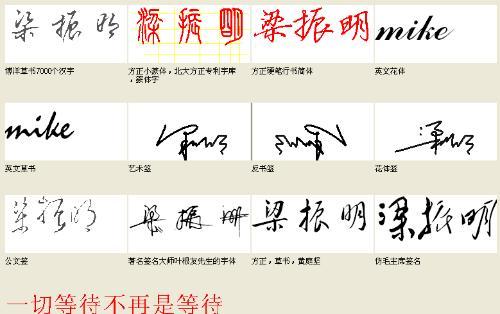 梁振明
梁振明
梁振明
mike
博洋草书7000个汉字
方正小篆体，北大方正专利字库，篆体字
方正硬笔行书简体
英文花体
mike
英文草书
艺术签
反书签
花体签
梁振明
梁振明
梁振明
梁振明
公文签
著名签名大师叶根友先生的字体
方正，草书，黄庭坚
仿毛主席签名
一切等待不再是等待